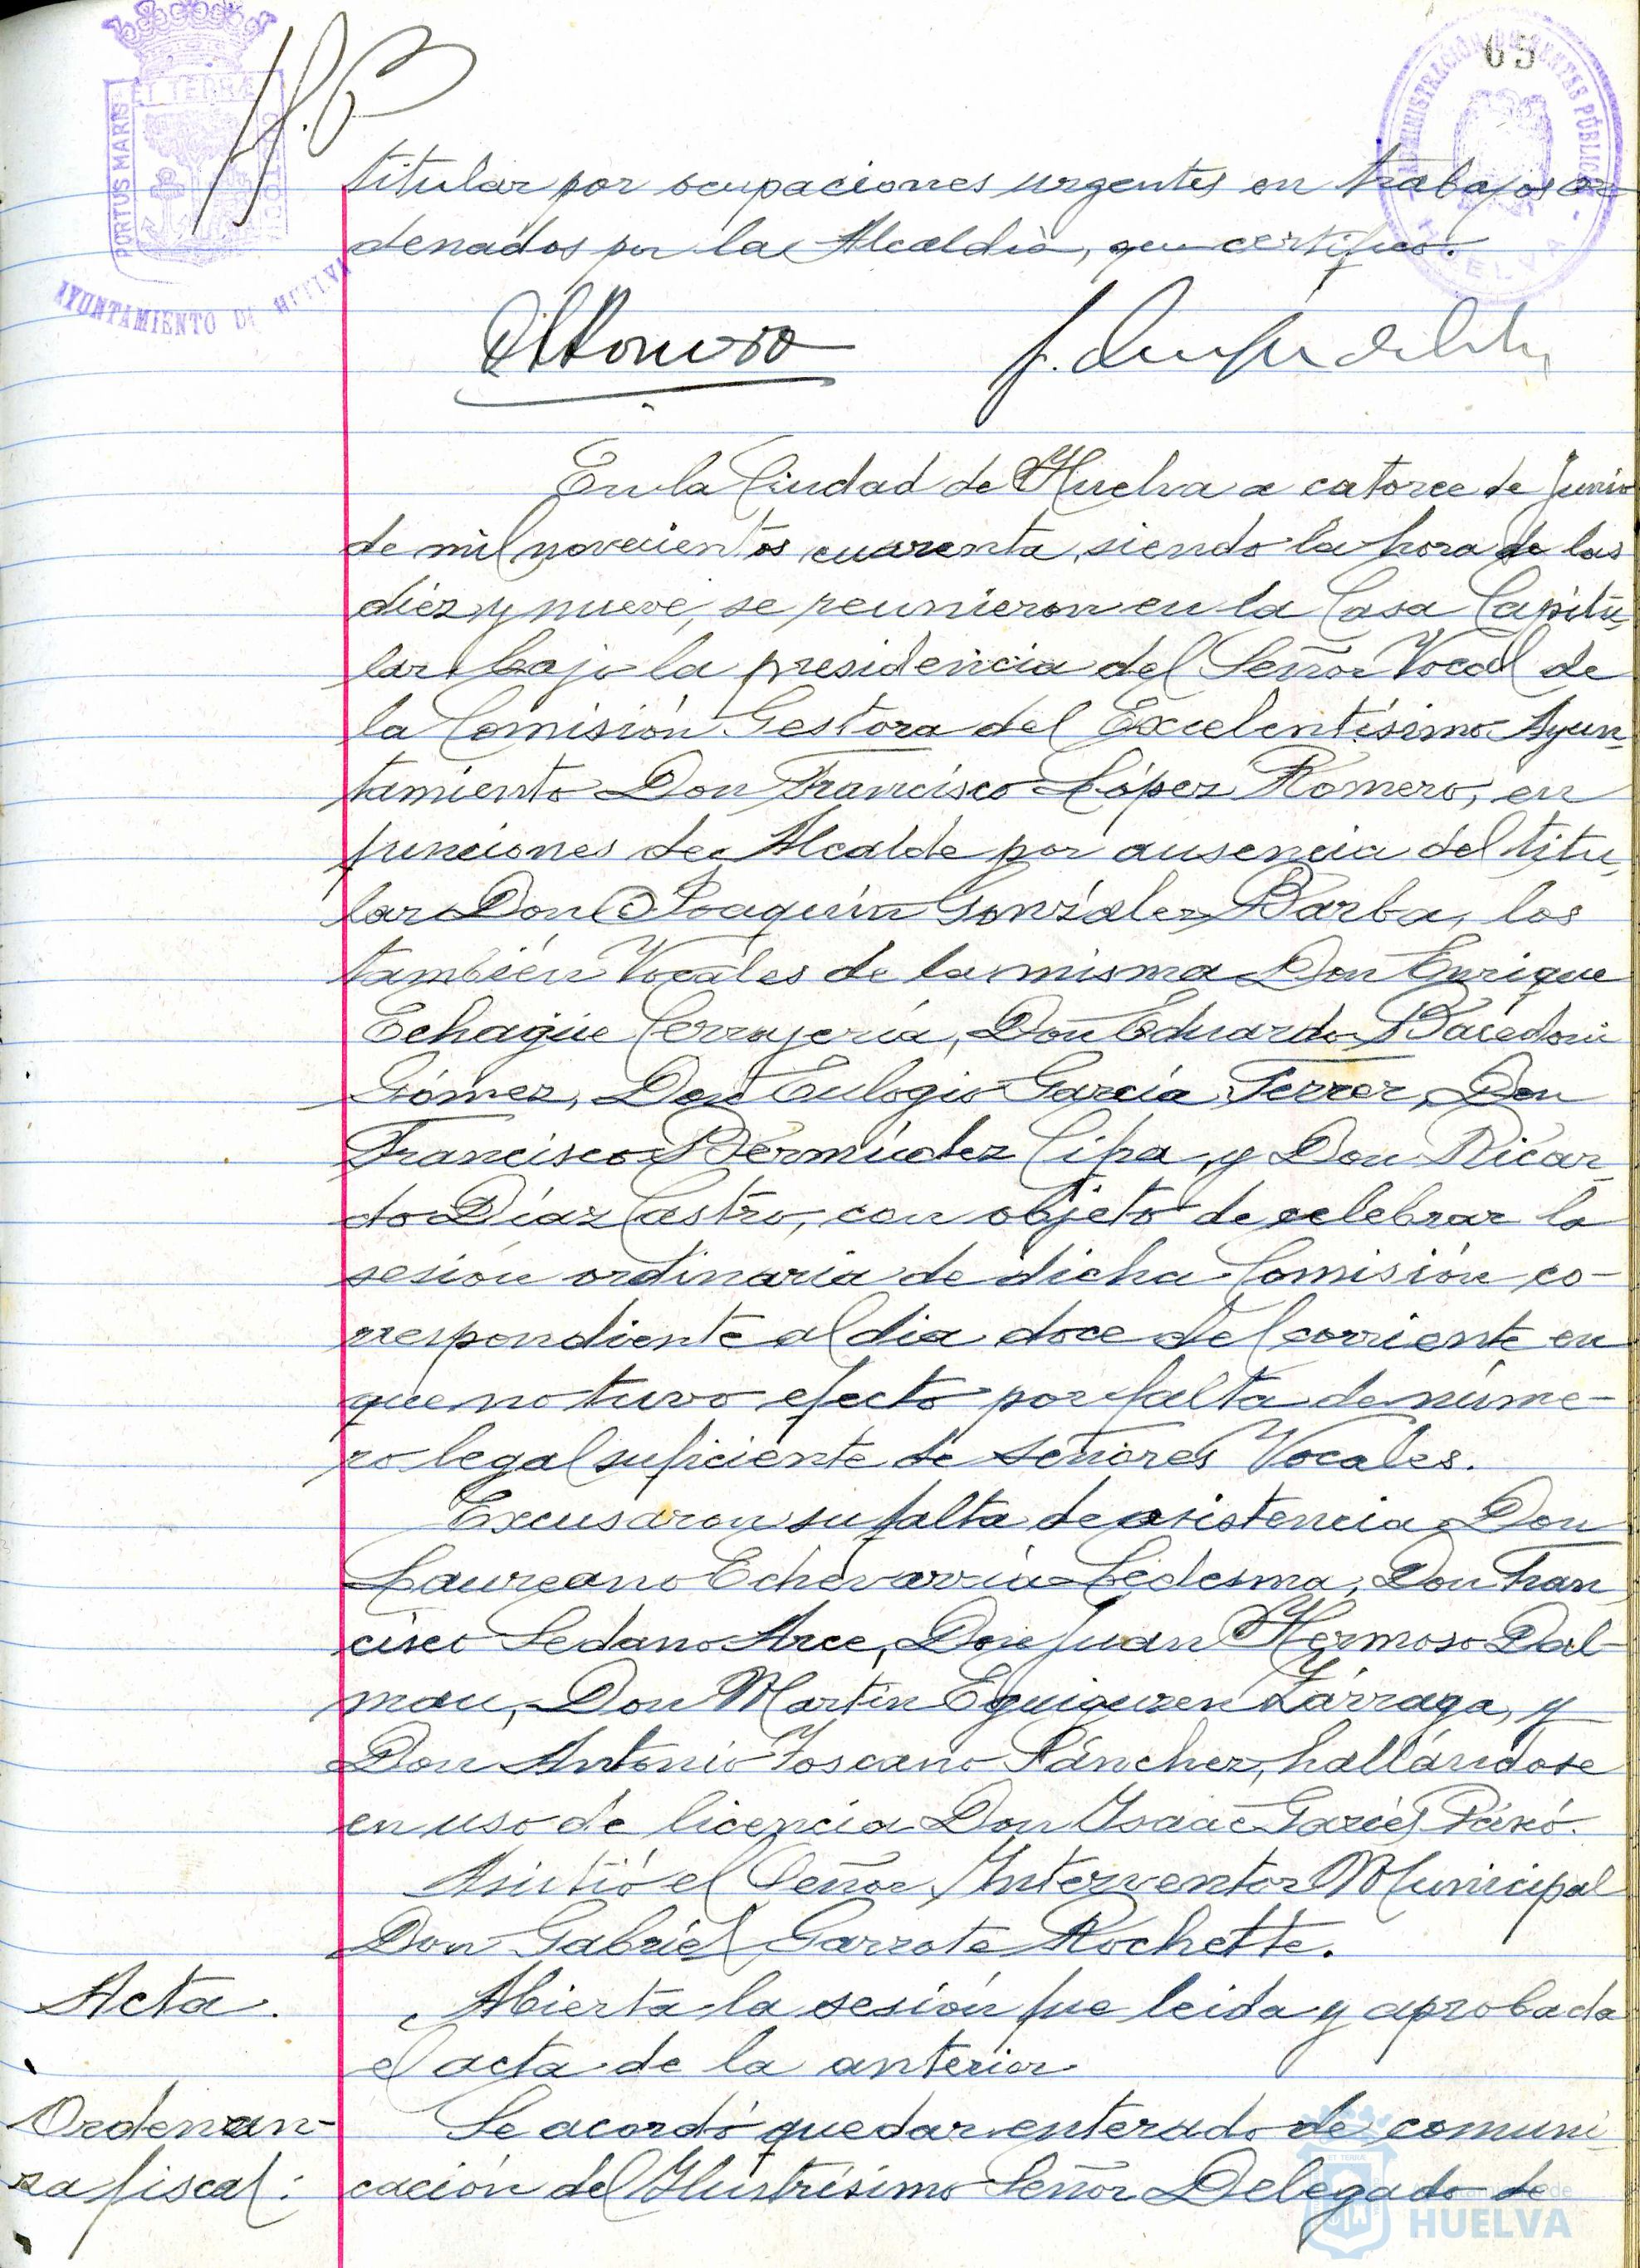 65
PORTUS MARIS
ET TERRÆ
CUSTODIA
AYUNTAMIENTO DE HUELVA
ADMINISTRACIÓN DE RENTAS PÚBLICAS
HUELVA
titular por ocupaciones urgentes en trabajos or
denados por la Alcaldía, que certifico.
En la Ciudad de Huelva a catorce de Junio
de mil novecientos cuarenta, siendo la hora de las
diez y nueve, se reunieron en la Casa Capitu-
lar bajo la presidencia del Señor Vocal de
la Comisión Gestora del Excelentísimo Ayun-
tamiento Don Francisco López Romero, en
funciones de Alcalde por ausencia del titu-
lar Don Joaquín González Barba, los
también Vocales de la misma Don Enrique
Echagüe Cerrajería, Don Eduardo Bacedoni
Gómez, Don Eulogio García Ferrer, Don
Francisco Bermúdez Cipa y Don Ricar-
do Díaz Castro, con objeto de celebrar la
sesión ordinaria de dicha Comisión co-
rrespondiente al dia doce del corriente en
que no tuvo efecto por falta de núme-
ro legal suficiente de señores Vocales.
Excusaron su falta de asistencia Don
Laureano Echevarria Ledesma, Don Fran
cisco Sedano Arce, Don Juan Hermoso Dal-
mau, Don Martín Eguiguren Zárraga, y
Don Antonio Toscano Sánchez, hallándose
en uso de licencia Don Ysaac
Asistió el Señor Interventor Municipal
Don Gabriel Garrote Rochette.
Acta.
Abierta la sesión fue leida y aprobada
el acta de la anterior.
Ordenan-
za fiscal:
Se acordó quedar enterado de comuni-
cación del Ilustrísimo Señor Delegado de
Ayuntamiento de
HUELVA